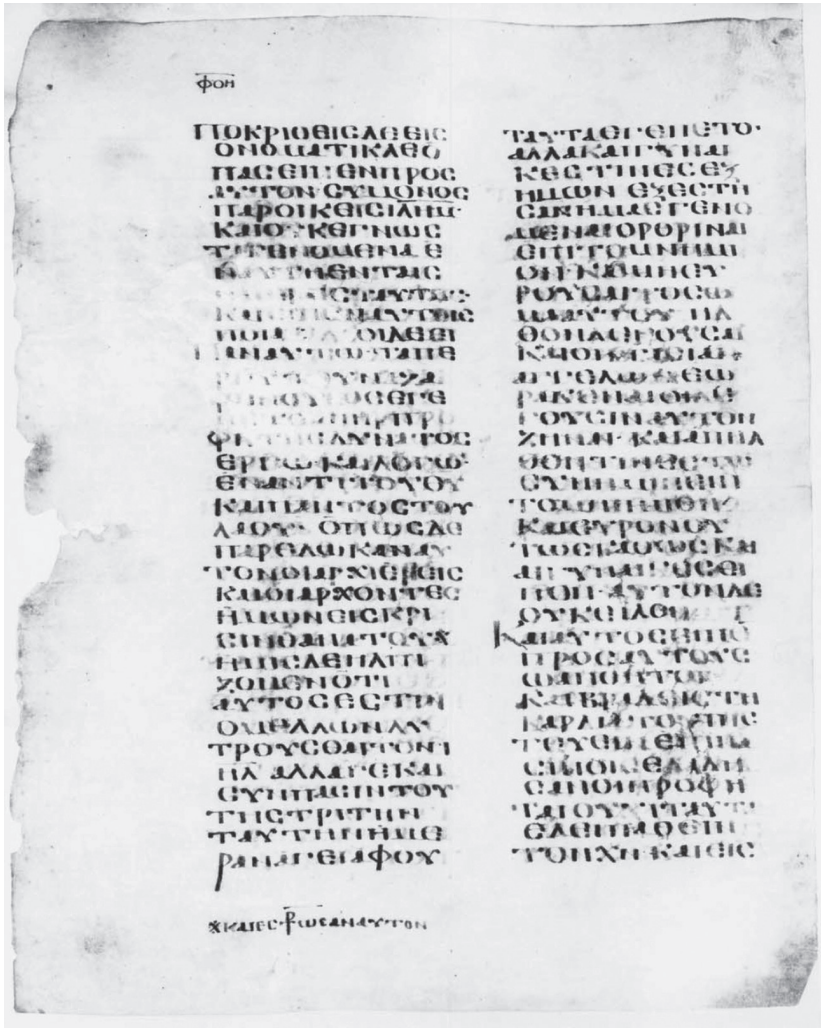 ΦΟΗ
ΠΟΚΡΙΘΕΙCΔΕΕΙC
ΟΝΟΜΑΤΙΚΛΕΟ
ΠΑCΕΙΠΕΝΠΡΟC
ΑΥΤΟΝCΥΜΟΝΟC
ΠΑΡΟΙΚΕΙCΙΛΗΜ·
ΚΑΙΟΥΚΕΓΝΩC
ΤΑΓΕΝΟΜΕΝΑΕ
ΝΑΥΤΗΕΝΤΑΙC
ΤΑΥΤΑΙC·
ΚΑΙΕΙΠΕΝΑΥΤΟΙC
ΠΟΙΑ ΟΙΔΕΕΙ
ΠΑΝΑΥΤΩΤΑΠΕ
ΝΑΖΑ
ΡΗΝΟΥΟCΕΓΕ
ΝΕΤΟΑΝΗΡΠΡΟ
ΦΗΤΗCΔΥΝΑΤΟC
ΕΡΓΩΚΑΙΛΟΓΩ·
ΕΝΑΝΤΙΤΟΥΘΥ
ΚΑΙΠΑΝΤΟCΤΟΥ
ΛΑΟΥ· ΟΠΩCΔΕ
ΠΑΡΕΔΩΚΑΝΑΥ
ΤΟΝΟΙΑΡΧΙΕΡΕΙC
ΚΑΙΟΙΑΡΧΟΝΤΕC
ΗΜΩΝΕΙCΚΡΙ
CΙΝΘΑΝΑΤΟΥ※
ΗΜΕΙCΔΕΗΛΠΙ
ΖΟΜΕΝΟΤΙ
ΑΥΤΟCΕCΤΙΝ
ΟΜΕΛΛΩΝΛΥ
ΤΡΟΥCΘΑΙΤΟΝΙ
ΗΛ ΑΛΛΑΓΕΚΑΙ
CΥΝΠΑCΙΝΤΟΥ
ΤΗCΤΡΙΤΗΝ
ΤΑΥΤΗΝΗΜΕ
ΡΑΝΑΓΕΙΑΦΟΥ
※ΚΑΙΕC⳨ΩCΑΝΑΥΤΟΝ
ΤΑΥΤΑΕΓΕΝΕΤΟ·
ΑΛΛΑΚΑΙΓΥΝΑΙ
ΚΕCΤΙΝΕCΕΞ
ΗΜΩΝ ΕΞΕCΤΗ
CΑΝΗΜΑCΓΕΝΟ
ΜΕΝΑΙΟΡΘΡΙΝΑΙ
ΕΠΙΤΟΜΝΗΜΙ
ΟΝ·ΚΑΙΜΗΕΥ
ΡΟΥCΑΙΤΟCΩ
ΜΑΑΥΤΟΥ ΗΛ
ΘΟΝΛΕΓΟΥCΑΙ
ΚΑΙΟΠΤΑCΙΑΝ
ΑΓΓΕΛΩΝΕΩ
ΡΑΚΕΝΑΙΟΙΛΕ
ΓΟΥCΙΝΑΥΤΟΝ
ΖΗΝ· ΚΑΙΑΠΗΛ
ΘΟΝΤΙΝΕCΤΩ
CΥΝΗΜΙΝΕΠΙ
ΤΟΜΝΗΜΙΟΝ
ΚΑΙΕΥΡΟΝΟΥ
ΤΩCΚΑΘΩCΚΑΙ
ΑΙΓΥΝΑΙΚΕCΕΙ
ΠΟΝ·ΑΥΤΟΝΔΕ
ΟΥΚΕΙΔΟΝ
ΚΑΙΑΥΤΟCΕΙΠΕ
ΠΡΟCΑΥΤΟΥC
ΩΑΝΟΗΤΟΙ
ΚΑΙΒΡΑΔΕΙCΤΗ
ΚΑΡΔΙΑΤΟΥΠΙC
ΤΕΥΕΙΝΕΠΙΠΑ
CΙΝΟΙCΕΛΑΛΗ
CΑΝΟΙΠΡΟΦΗ
ΤΑΙΟΥΧΙΤΑΥΤΑ
ΕΔΕΙΠΑΘΕΙΝ
ΤΟΝΧΝ·ΚΑΙΕΙC